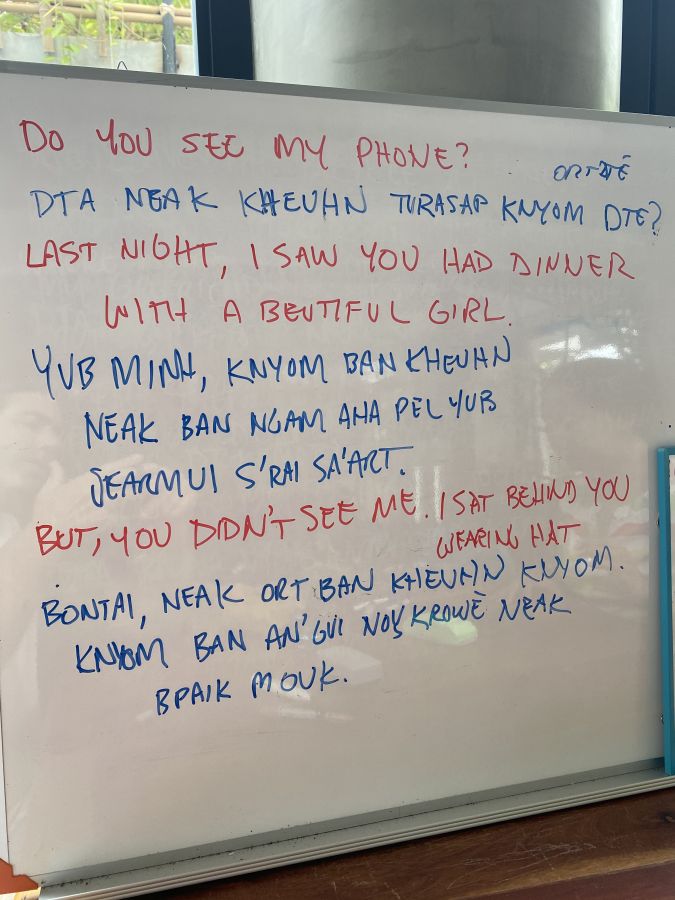 DO YOU SEE MY PHONE?
ORT TÊ
DTA NEAK KHEUHN TURASAP KNYOM DTE?
LAST NIGHT, I SAW YOU HAD DINNER
WITH A BEUTIFUL GIRL.
YUB MINH, KNYOM BAN KHEUHN
NEAK BAN NGAM AHA PEL YUB
JEARMUI S'RAI SA'ART.
BUT, YOU DIDN'T SEE ME. I SAT BEHIND YOU
WEARING HAT
BONTAI, NEAK ORT BAN KHEUHN KNYOM.
KNYOM BAN AN'GUI NOY KROWÊ NEAK
BPAIK MOUK.